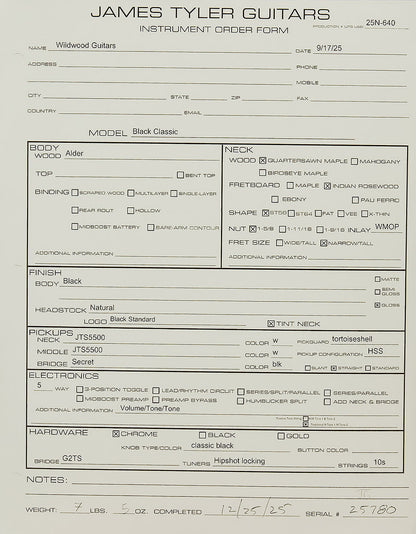 JAMES TYLER GUITARS
INSTRUMENT ORDER FORM
25N-640
NAME Wildwood Guitars DATE 9/17/25
ADDRESS PHONE
MOBILE
CITY STATE ZIP FAX
COUNTRY EMAIL
MODEL Black Classic
BODY
WOOD Alder
TOP BENT TOP
BINDING SCRAPED WOOD MULTILAYER SINGLE-LAYER
REAR ROUT HOLLOW
MIDBOOST BATTERY BARE-ARM CONTOUR
ADDITIONAL INFORMATION
NECK
WOOD ☒ QUARTERSAWN MAPLE ☐ MAHOGANY
☐ BIRDSEYE MAPLE
FRETBOARD ☐ MAPLE ☒ INDIAN ROSEWOOD
☐ EBONY ☐ PAU FERRO
SHAPE ☒ ST59 ☐ ST64 ☐ FAT ☐ VEE ☐ X-THIN
NUT ☒ 1-5/8 ☐ 1-11/16 ☐ INLAY WMOP
FRET SIZE ☐ WIDE/TALL ☒ NARROW/TALL
ADDITIONAL INFORMATION
FINISH
BODY Black
☐ MATTE
☐ SEMI GLOSS
☒ GLOSS
HEADSTOCK Natural
LOGO Black Standard ☒ TINT NECK
PICKUPS
NECK JTS5500 COLOR w PICKGUARD tortoiseshell
MIDDLE JTS5500 COLOR w PICKUP CONFIGURATION HSS
BRIDGE Secret COLOR blk ☐ SLANT ☒ STRAIGHT ☐ STANDARD
ELECTRONICS
5 WAY ☐ 3-POSITION TOGGLE ☐ LEAD/RHYTHM CIRCUIT ☐ SERIES/SPLIT/PARALLEL ☐ SERIES/PARALLEL
☐ MIDBOOST PREAMP ☐ PREAMP BYPASS ☐ HUMBUCKER SPLIT ☐ ADD NECK & BRIDGE
ADDITIONAL INFORMATION Volume/Tone/Tone
HARDWARE ☒ CHROME ☐ BLACK ☐ GOLD
KNOB TYPE/COLOR classic black BUTTON COLOR
BRIDGE G2TS TUNERS Hipshot locking STRINGS 10s
NOTES:
WEIGHT: 7 LBS. 5 OZ. COMPLETED 12/25/25 SERIAL # 25780